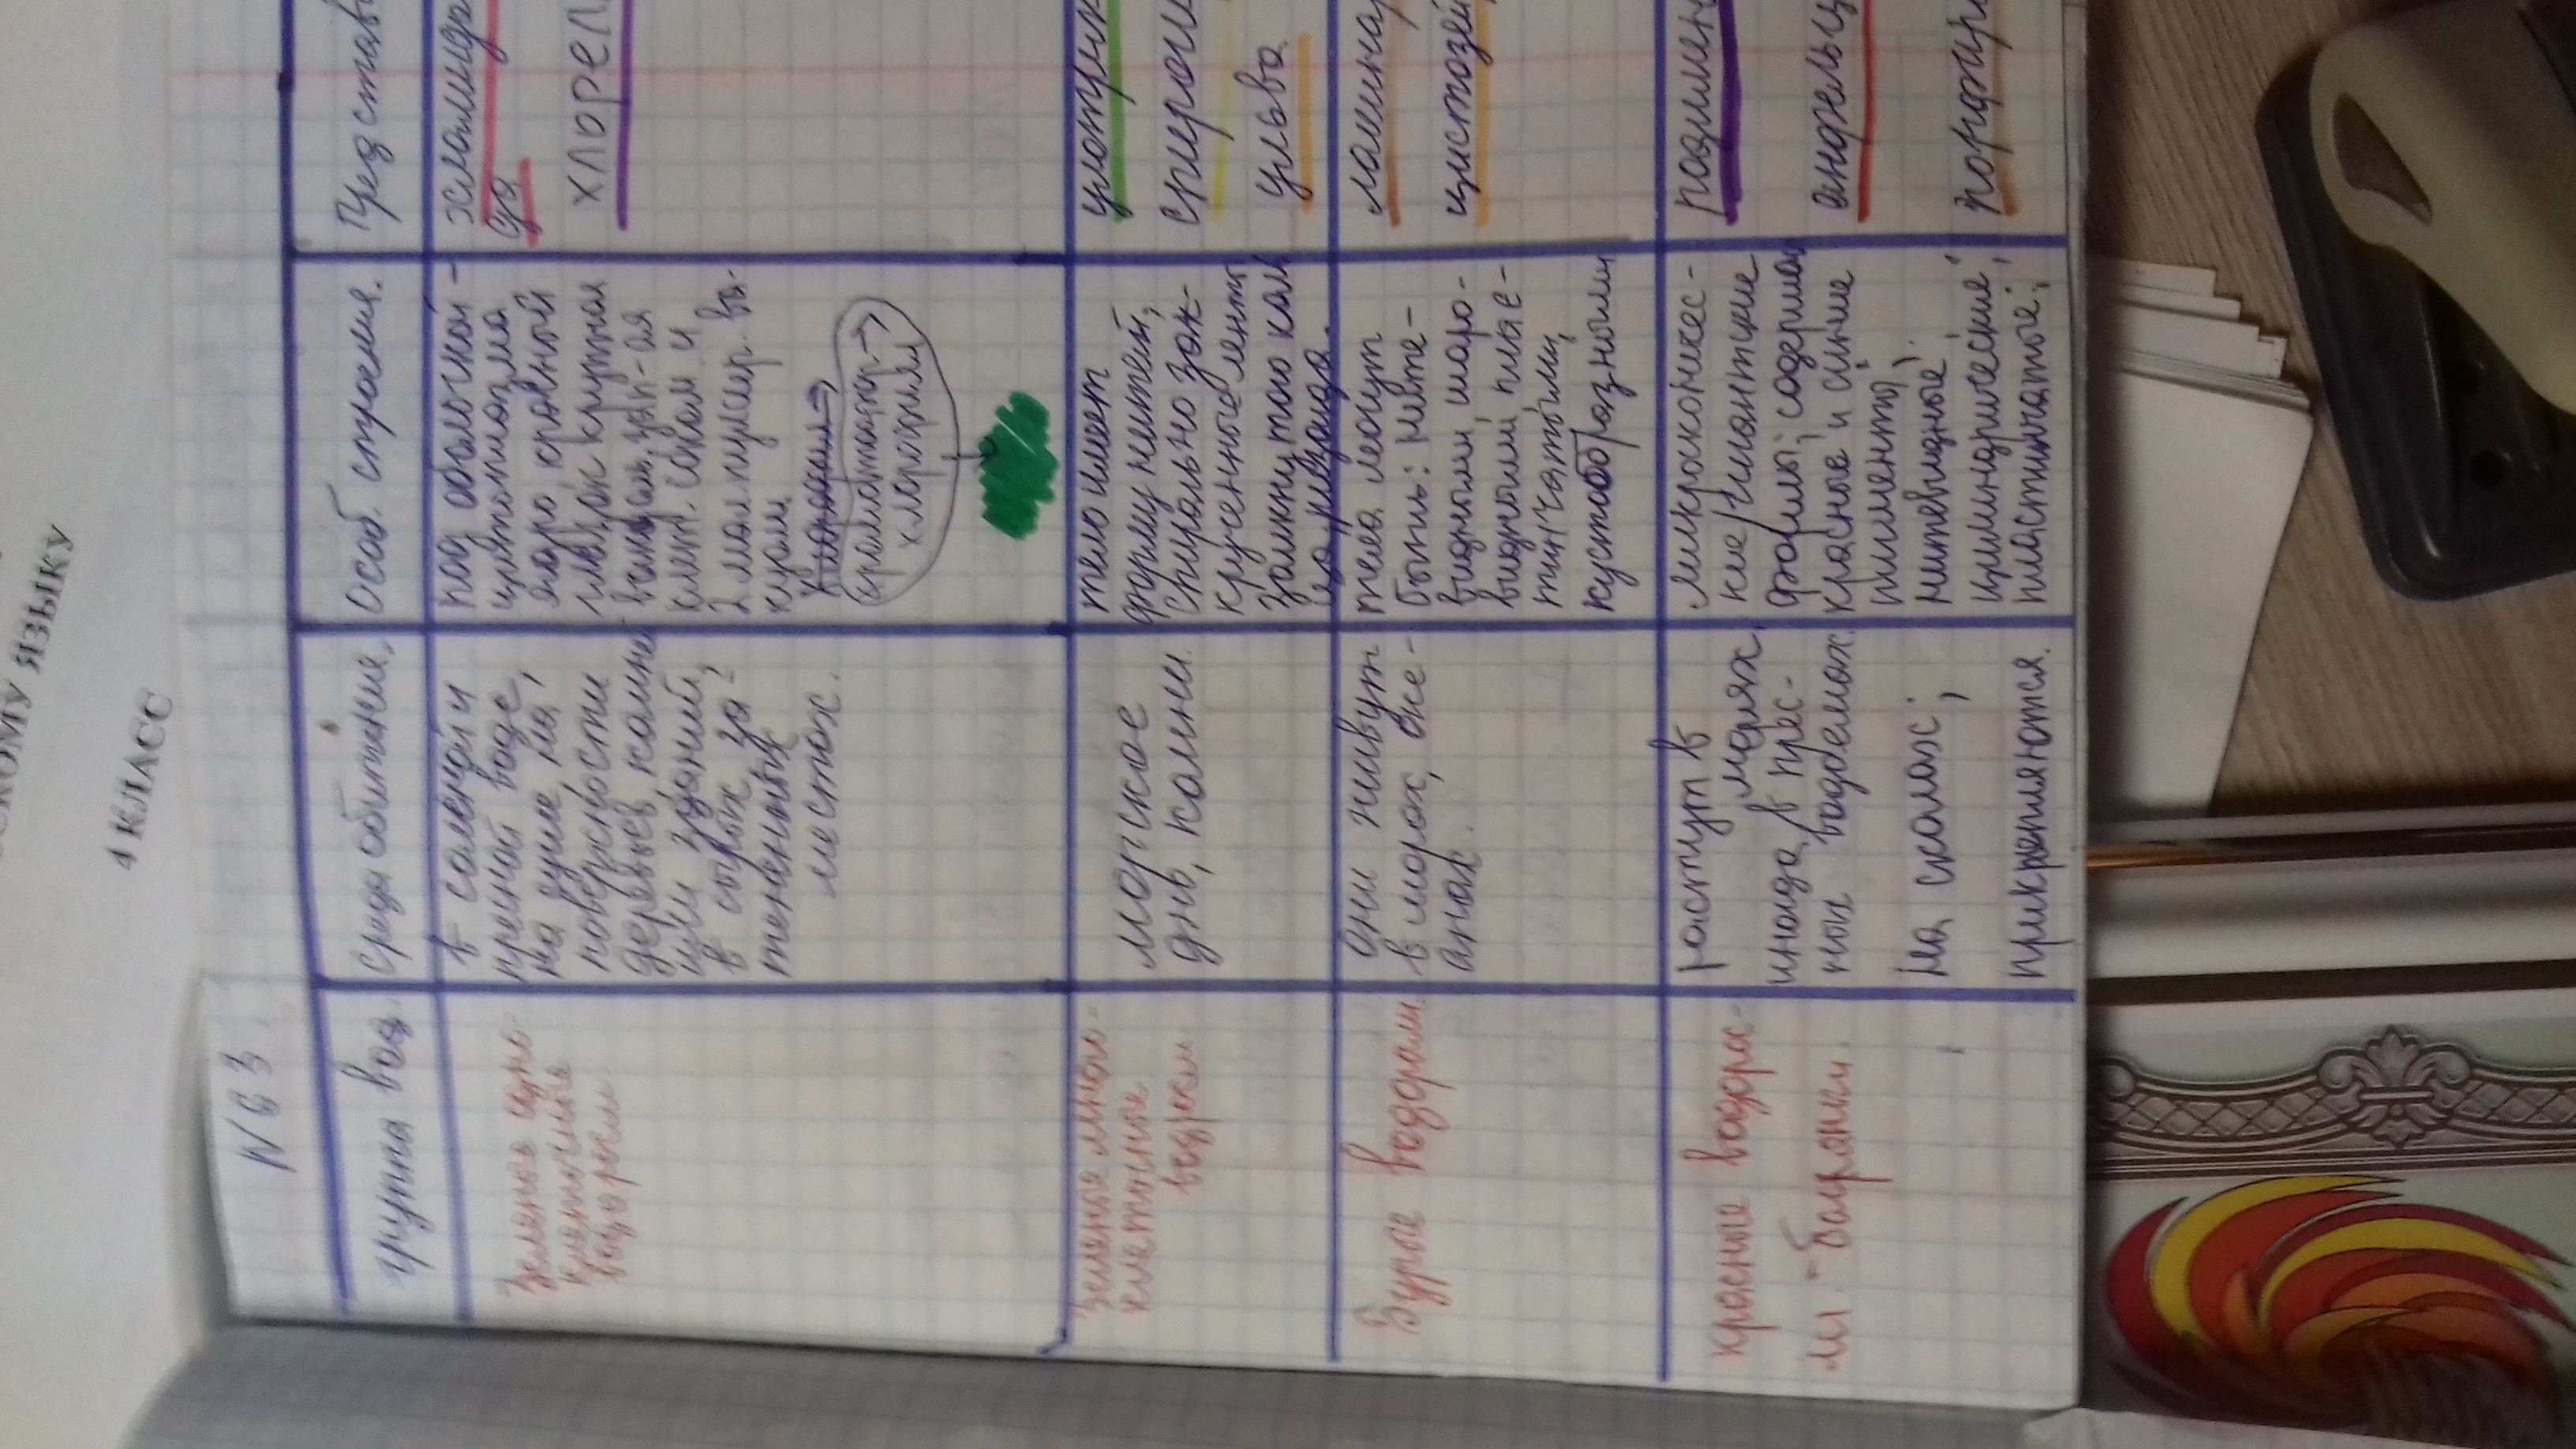 4 КЛАСС
ЯЗЫКУ
N63.
группа вод.
Среда обитания.
Особ. строения.
Представ
Зеленые одно-
клеточные
водоросли
в соленой и
пресной воде,
на суше на
поверхности
деревьев, камне
или зданий,
в сырых за-
тененных
местах.
под оболочкой -
цитоплазма
ядро, кровяной
глазок крупная
вакуоль, зап-ая
клет. соком и
2 мал. пульсир. ва-
куоли
хроматофор →
хлорофилл
хламидо
да
хлорел
Зеленые много-
клеточные
водросли
морское
дно, камни.
тело имеет
форму нитей,
спирально зак-
крученные ленты
замкнутого коль
улотри
спироги
ульва
Бурые водоросли
они живут
в морях, оке-
анах.
тела могут
быть: ните-
видными, шаро-
видными, плас-
тинчатыми,
кустообразными
ламинар
цистозей
красные водорос-
ли - багрянки.
растут в
морях,
иногда в прес-
ных водоемах
на скалах;
прикрепляются.
микроскопичес-
кие/гигантские
формы; содержат
красные и синие
пигменты;
нитевидные;
цилиндрические;
пластинчатые;
родимен
анфельц
порфир